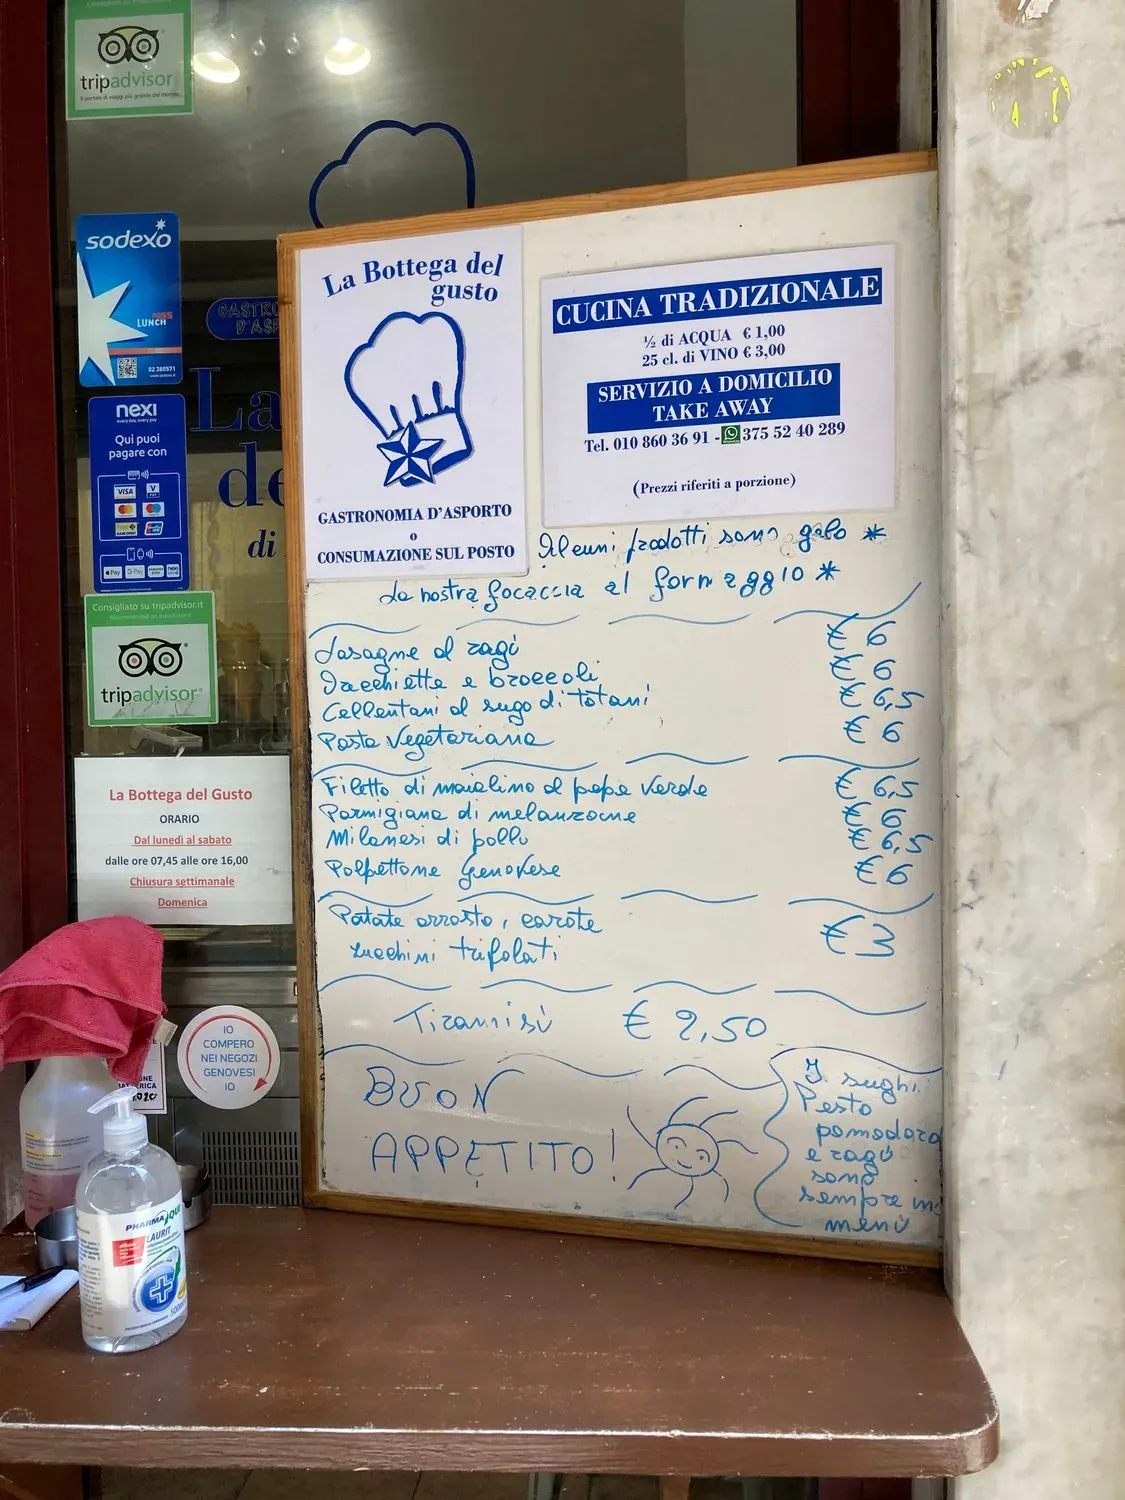 Consigliato su tripadvisor.it
tripadvisor
Il portale di viaggi più grande del mondo
sodexo
PASS
LUNCH
02 380571
nexi
every day, every pay
Qui puoi
pagare con
VISA
V PAY
Pay
G Pay
nexi
Consigliato su tripadvisor.it
tripadvisor
GASTRO
D'ASP
La
de
di
La Bottega del Gusto
ORARIO
Dal lunedì al sabato
dalle ore 07,45 alle ore 16,00
Chiusura settimanale
Domenica
IO
COMPERO
NEI NEGOZI
GENOVESI
IO
2020
PHARMAQUI
LAURIT
500ml
La Bottega del
gusto
GASTRONOMIA D'ASPORTO
o
CONSUMAZIONE SUL POSTO
CUCINA TRADIZIONALE
½ di ACQUA € 1,00
25 cl. di VINO € 3,00
SERVIZIO A DOMICILIO
TAKE AWAY
Tel. 010 860 36 91 - 375 52 40 289
(Prezzi riferiti a porzione)
Alcuni prodotti sono gelo *
La nostra focaccia al formaggio *
Lasagne al ragù € 6
Orecchiette e broccoli € 6
Cellentani al sugo di totani € 6,5
Pasta Vegetariana € 6
Filetto di maialino al pepe verde € 6,5
Parmigiana di melanzane € 6
Milanesi di pollo € 6,5
Polpettone Genovese € 6
Patate arrosto, carote
zucchini trifolati € 3
Tiramisù € 2,50
BUON
APPETITO!
I sughi
Pesto
pomodoro
e ragù
sono
sempre in
menù